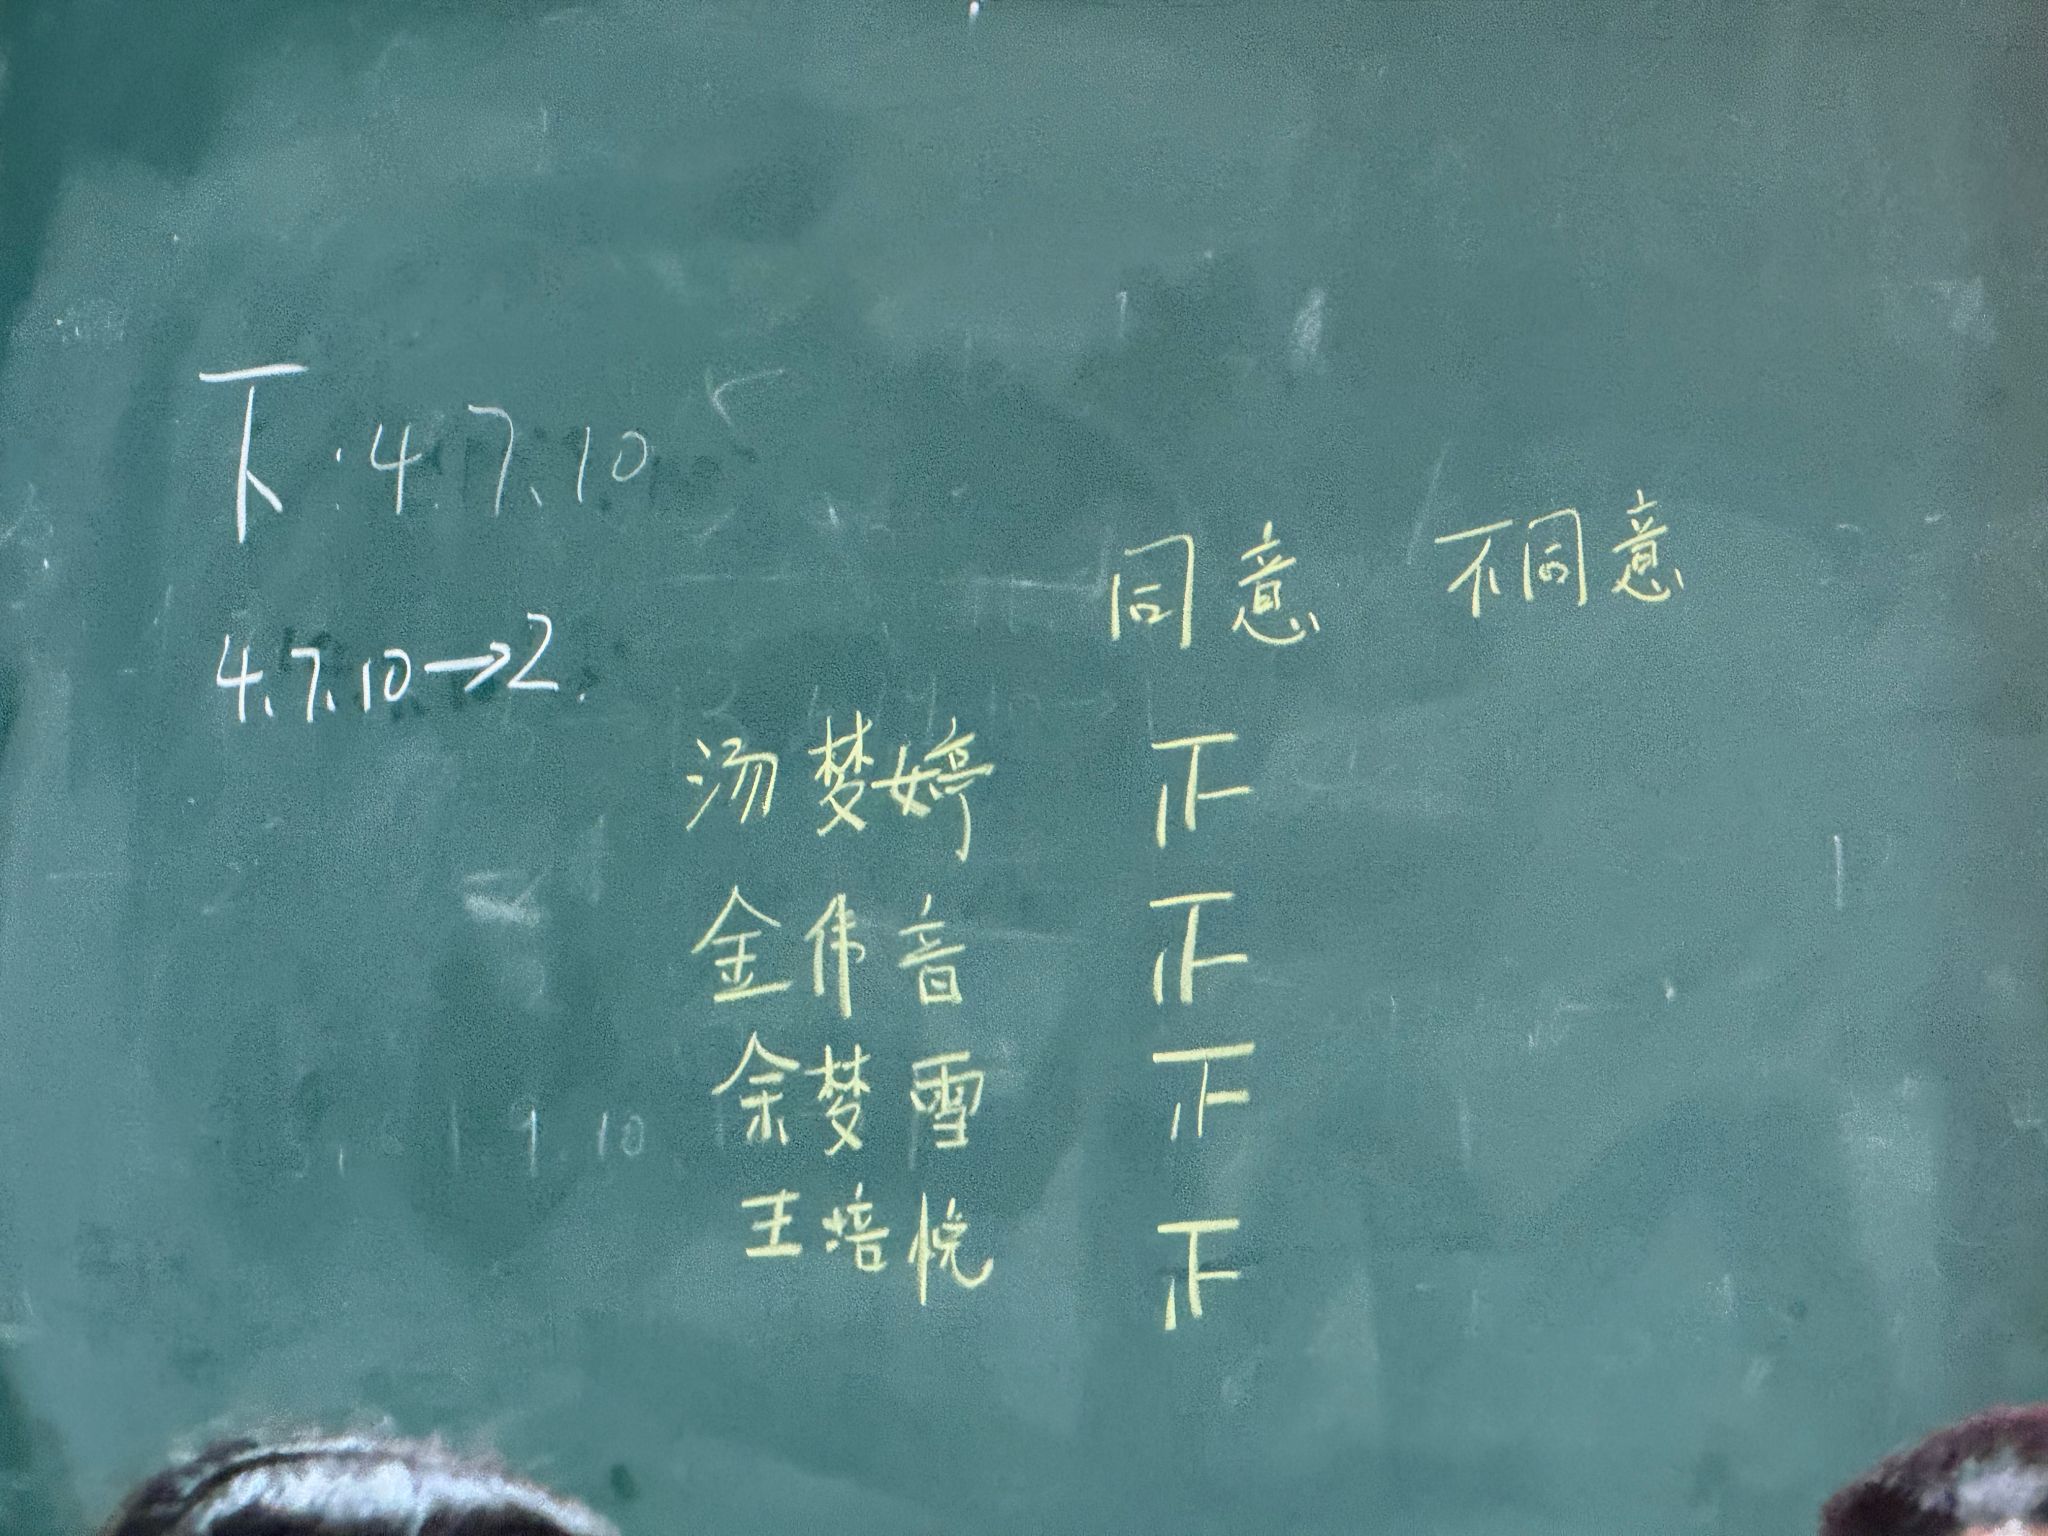 下:4.7、10
4、7、10→2.
同意 不同意
汤梦婷 正
金伟音 正
余梦雪 正
王培悦 正